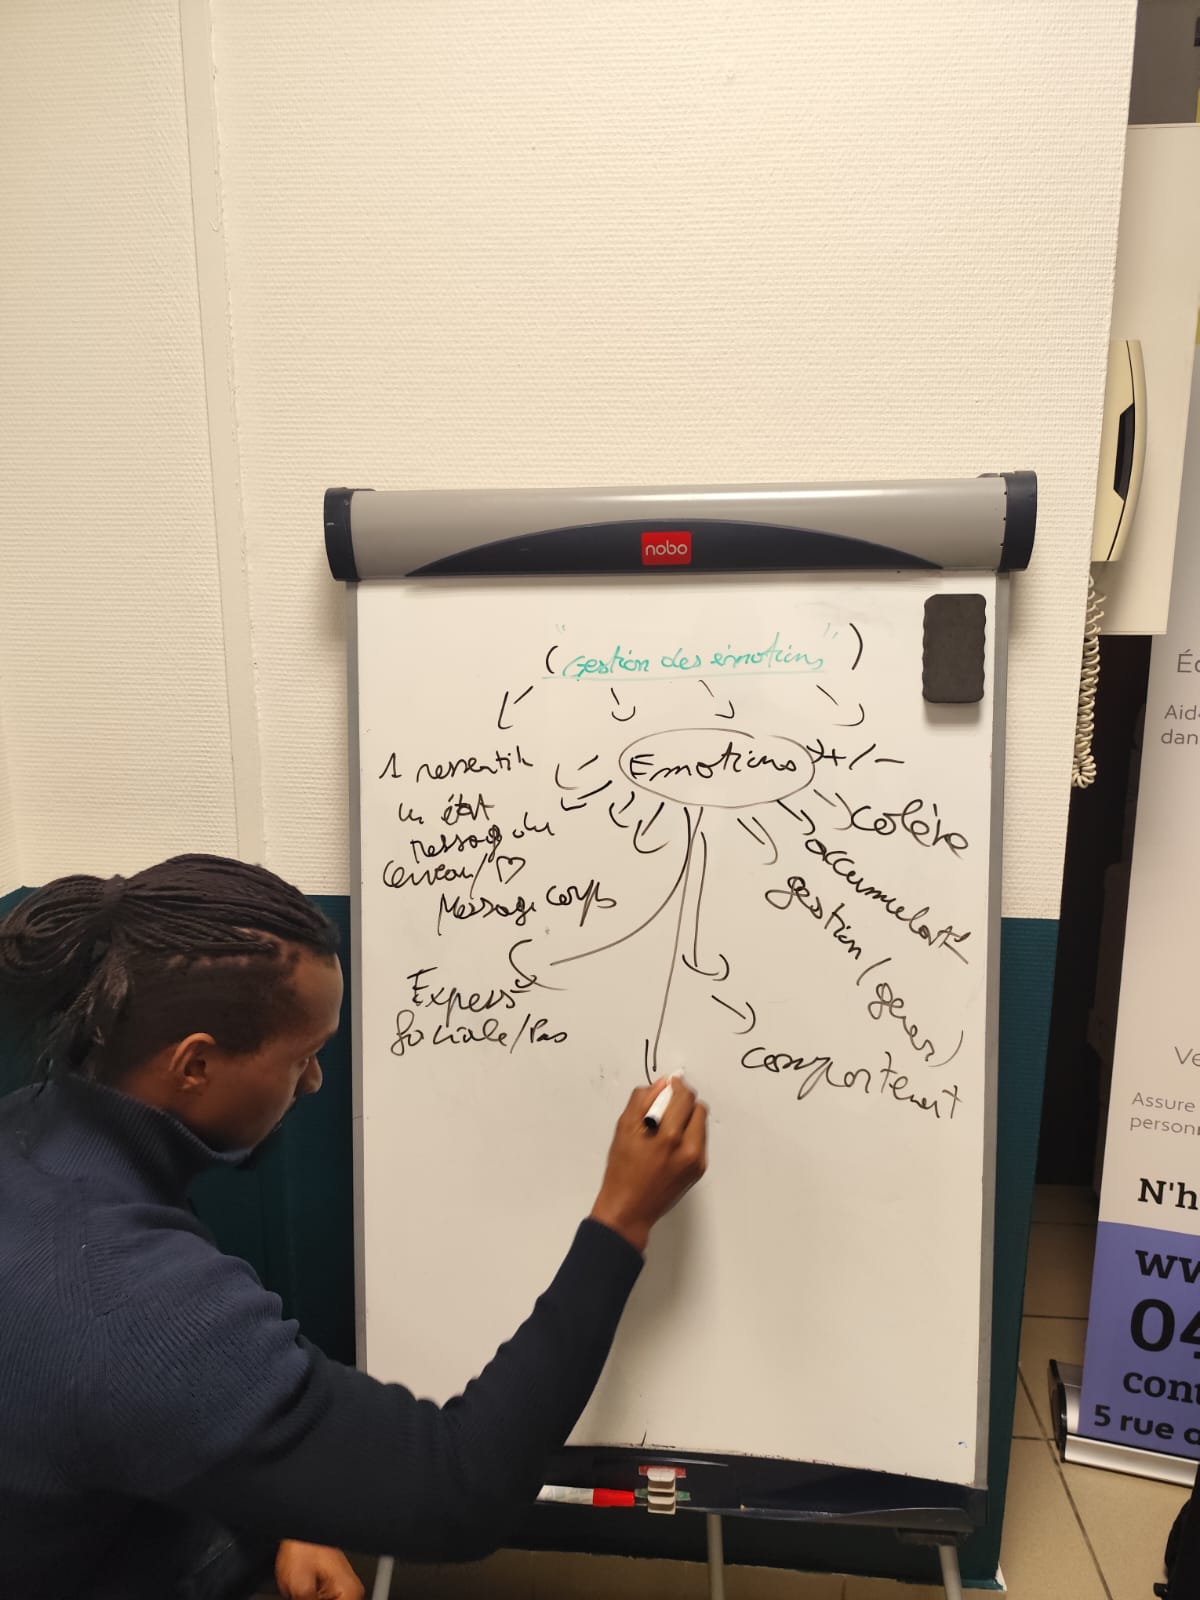 nobo
("Gestion des émotions")
Emotions
+/-
1 ressentit
un état
message du
Cerveau/♡
Message corps
Express°
faciale/Pas
colère
accumulat°
gestion (gérer)
comportement
Aid
dan
Ve
Assure
person
N'h
ww
04
cont
5 rue